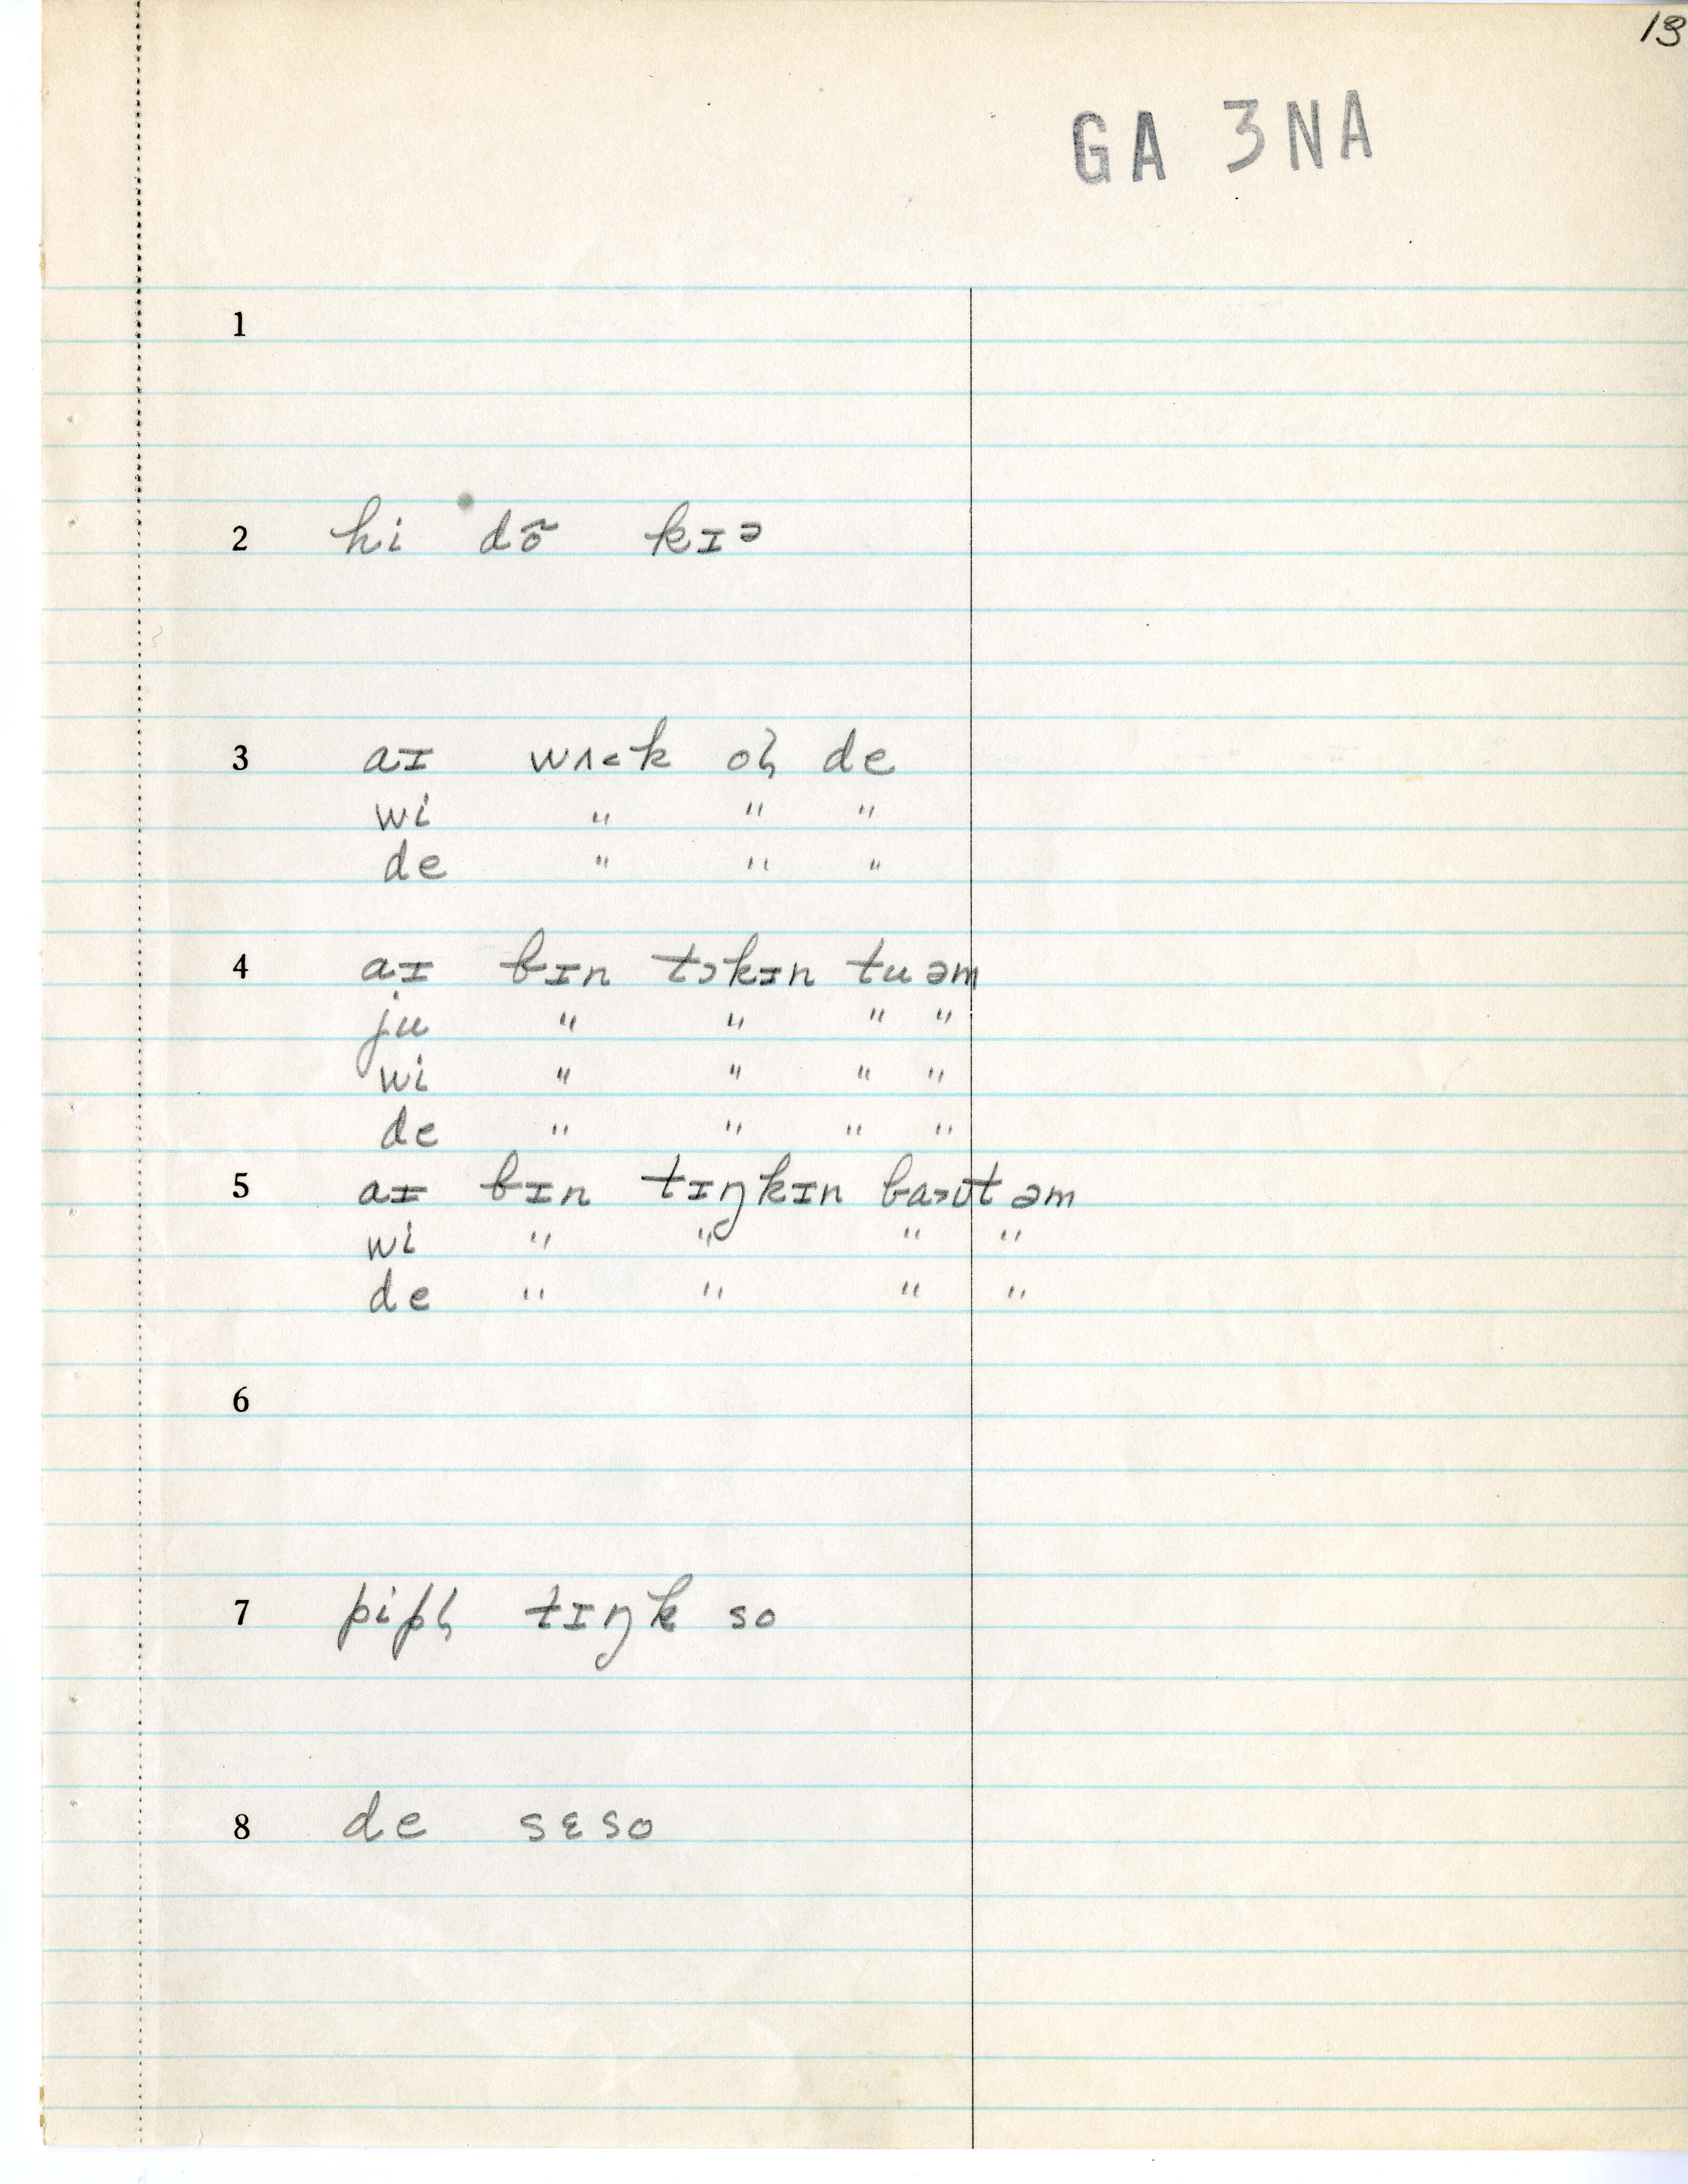 13
GA 3NA
1
2 hi dõ kɪə
3 aɪ wʌ˂k ɒɫ de
wi " " "
de " " "
4 aɪ bɪn tɔkɪn tu əm
ju " " " "
wi " " " "
de " " " "
5 aɪ bɪn tɪŋkɪn ba˃ʊt əm
wi " " " "
de " " " "
6
7 pipɫ tɪŋk so
8 de sɛ so